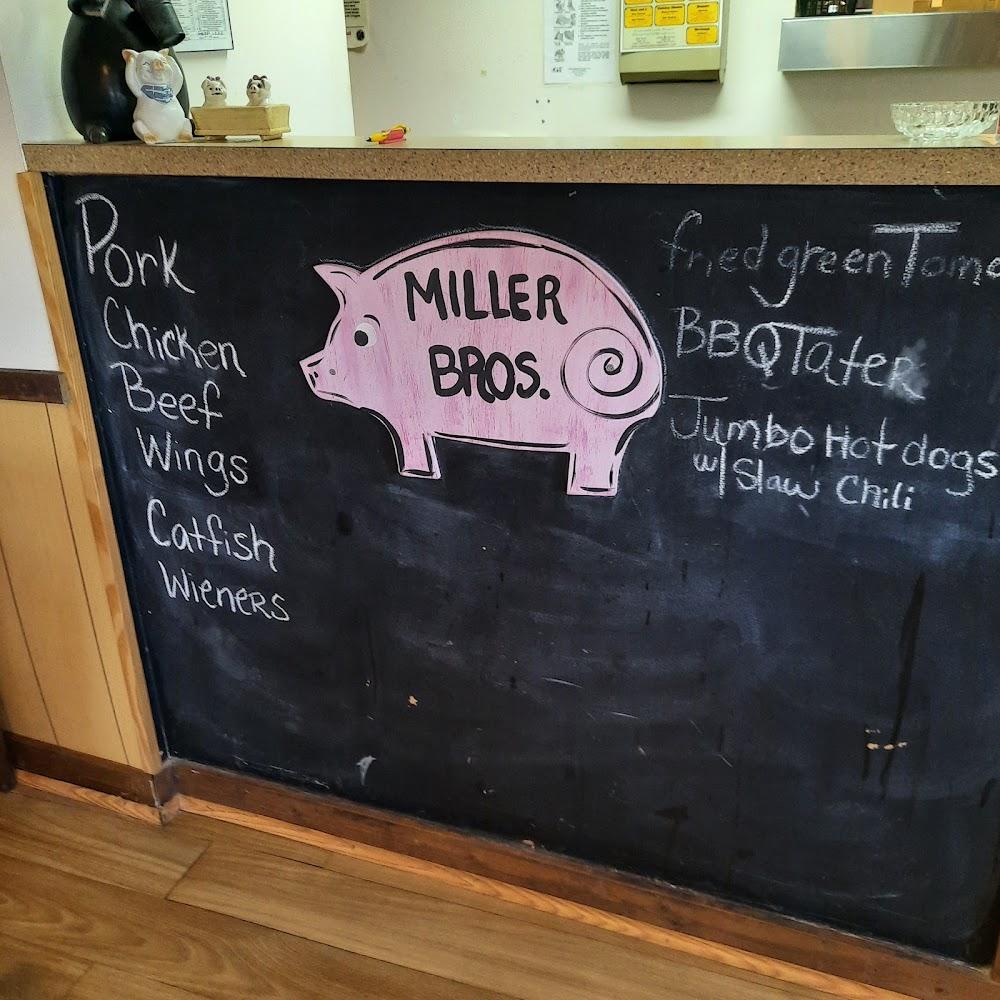 Pork
Chicken
Beef
Wings
Catfish
Wieners
MILLER
BROS.
fried green Toma
BBQ Tater
Jumbo Hot dogs
w/ Slaw Chili